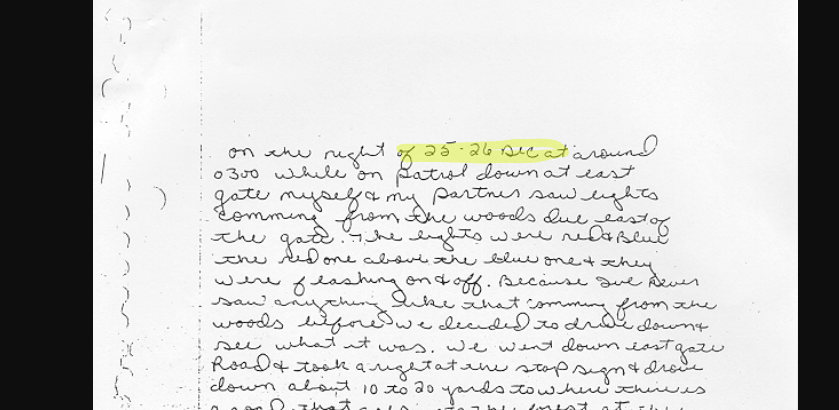 on the night of 25-26 Dec at around
0300 while on patrol down at east
gate myself & my partner saw lights
comming from the woods due east of
the gate. The lights were red & Blue
the red one above the blue one & they
were flashing on & off. Because I've never
saw anything like that comming from the
woods before we decided to drive down &
see what it was. We went down east gate
Road & took a right at the stop sign & drove
down about 10 to 20 yards to where there is
a road that goes into the forest at the